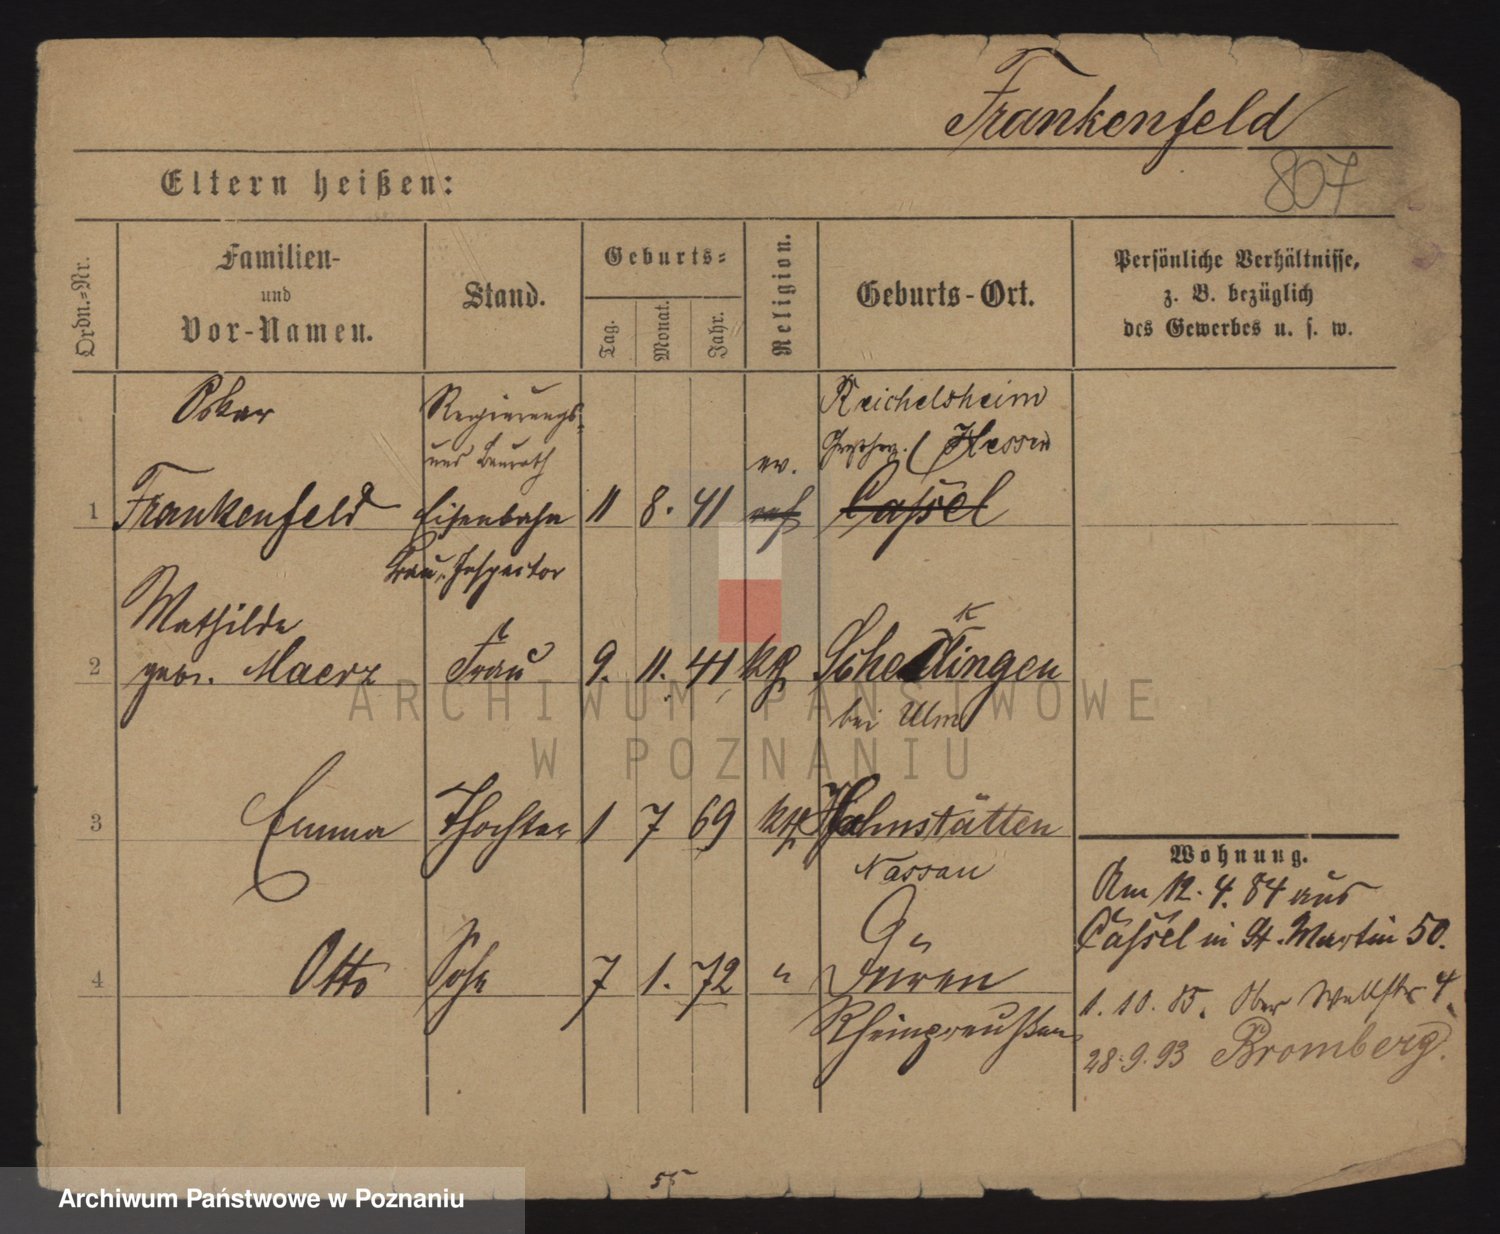 Frankenfeld
807
Eltern heißen:
Ordn.-Nr.
Familien-
und
Vor-Namen.
Stand.
Geburts-
Tag.
Monat.
Jahr.
Religion.
Geburts-Ort.
Persönliche Verhältnisse,
z. B. bezüglich
des Gewerbes u. s. w.
Oskar
Regierungs-
und Baurath
Reichelsheim
Hessen
ev.
1 Frankenfeld Eisenbahn 11 8. 41 ref Cassel
Bau-Inspector
Mathilde
2 geb. Maerz Frau 9. 11. 41 Schelklingen
bei Ulm
3 Emma Thochter 1 7 69 Hahnstätten
Nassau
4 Otto Sohn 7 1. 72 " Düren
Rheinpreußen
Wohnung.
Am 12. 4. 84 aus
Cassel in St. Martin 50.
1. 10. 85. Ober Wallstr. 4.
28.9.93 Bromberg.
55
ARCHIWUM PAŃSTWOWE
W POZNANIU
Archiwum Państwowe w Poznaniu